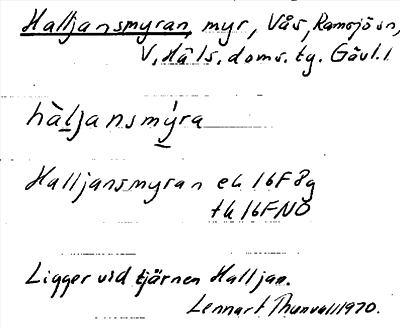 Halljansmyran, myr, Vås, Ramsjö sn,
V. Häls. doms. tg. Gävl. l
hàljansmýra
Halljansmyran ek 16F8g
tk 16FNO
Ligger vid tjärnen Halljan.
Lennart Thunvall 1970.